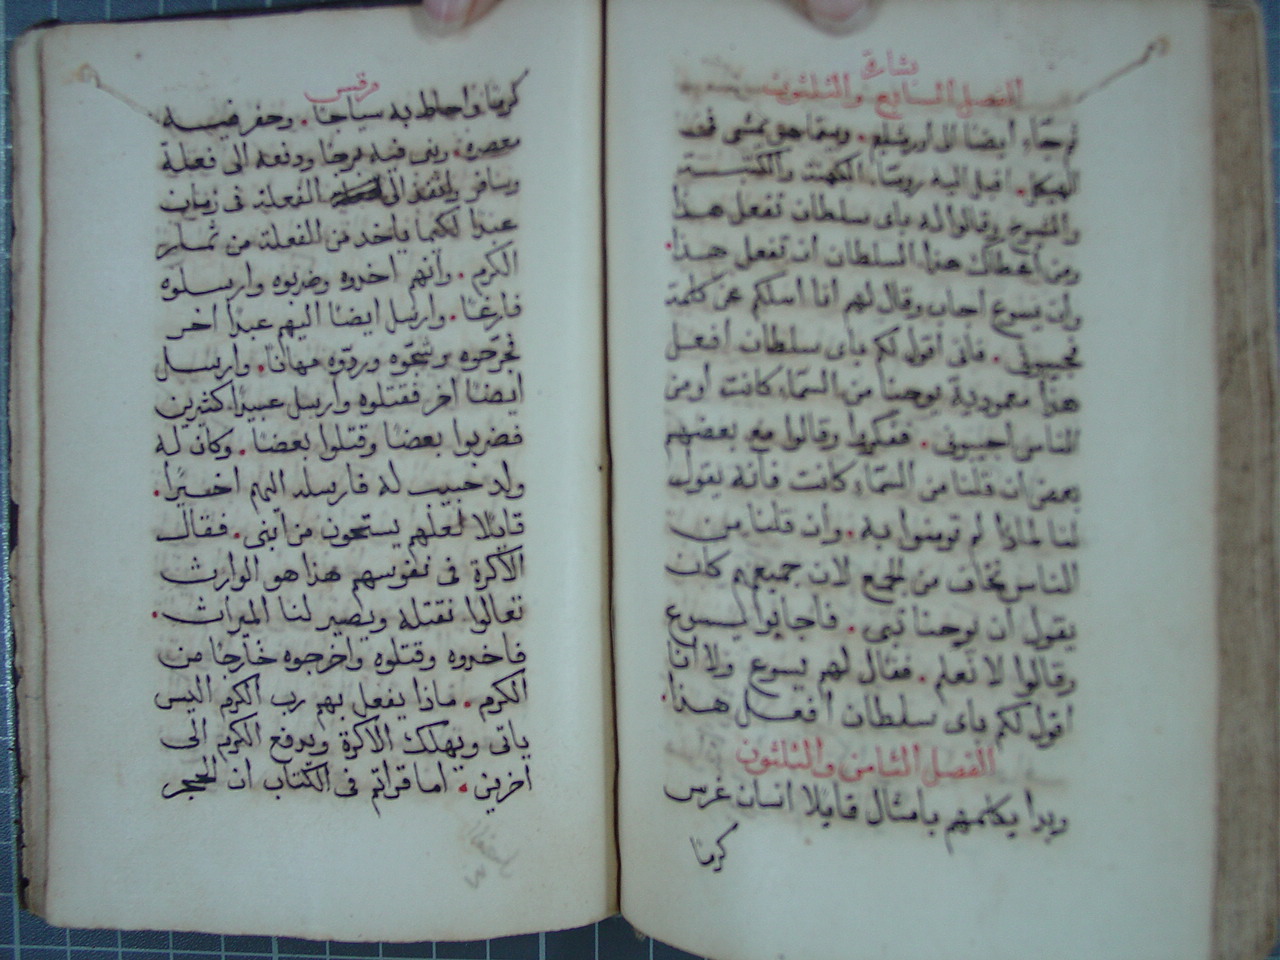 بشارة
الفصل السابع والثلثون
ثم جاء ايضا الى اورشليم. وبينما هو يمشى فى
الهيكل. اقبل اليه روسا الكهنة والكتبة
والشيوخ وقالوا له باى سلطان تفعل هذا
ومن اعطاك هذا السلطان ان تفعل هذا.
وان يسوع اجاب وقال لهم انا اسلكم عن كلمة
فجيبونى. فانى اقول لكم باى سلطان افعل
هذا معمودية يوحنا من السماء كانت أو من
الناس اجيبونى. ففكروا وقالوا مع بعضهم
بعض ان قلنا من السماء كانت فانه يقول
لنا لماذا لم تومنوا به. وان قلنا من
الناس نخاف من الجمع لان جميعهم كان
يقول أن يوحنا نبى. فاجابوا ليسوع
وقالوا لا نعلم. فقال لهم يسوع ولا أنا
اقول لكم باى سلطان أفعل هذا.
الفصل الثامن والثلثون
وبدا يكلمهم بامثال قايلا انسان غرس
كرمًا
مرقس
كرمًا واحاط به سياجا. وحفر فيه
معصرة. وبنى فيه برجا ودفعه الى فعلة
وسافر وانفذ الى الفعلة فى زمان
عبدا لكيما ياخد من الفعلة من ثمار
الكرم. وانهم اخدوه وضربوه وارسلوه
فارغا. وارسل ايضا اليهم عبدا اخر
فجرحوه وشجّوه وردّوه مهانا. وارسل
ايضا اخر فقتلوه وارسل عبيدا كثيرين
فضربوا بعضا وقتلوا بعضا. وكان له
ولد حبيب له فارسله اليهم اخيرًا.
قايلا لعلهم يستحون من ابنى. فقال
الاكرة فى نفوسهم هذا هو الوارث
تعالوا نقتله ويصير لنا الميراث.
فاخدوه وقتلوه واخرجوه خارجا من
الكرم. ماذا يفعل بهم رب الكرم اليس
ياتى ويهلك الاكرة ويدفع الكرم الى
اخرين. اما قراتم فى الكتاب ان الحجر